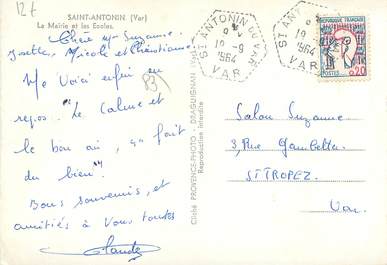 12f
SAINT-ANTONIN (Var)
La Mairie et les Ecoles.
Chère Mme Suzanne.
Josette, Nicole et Christiane.
Me Voici enfin en
repos. Le Calme et
le bon air, "ça fait
du bien".
Bons souvenirs, et
amitiés à Vous toutes
Claude
83
Cliché PROVENCE-PHOTO - DRAGUIGNAN (Var)
Reproduction interdite
ST ANTONIN DU VAR
19-9
1964
VAR
19
1964
VAR
REPUBLIQUE FRANÇAISE
POSTES 0,20
Salon Suzanne
3, Rue Gambetta.
ST TROPEZ.
Var.